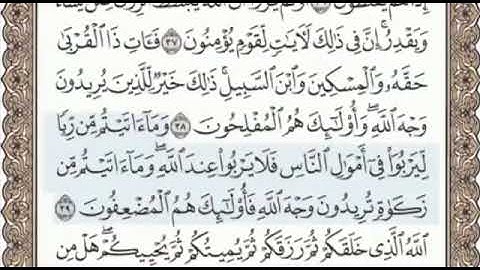 وَيَقْدِرُ ۚ إِنَّ فِي ذَٰلِكَ لَآيَاتٍ لِّقَوْمٍ يُؤْمِنُونَ ٣٧ فَـَٔاتِ ذَا ٱلْقُرْبَىٰ
حَقَّهُۥ وَٱلْمِسْكِينَ وَٱبْنَ ٱلسَّبِيلِ ۚ ذَٰلِكَ خَيْرٌ لِّلَّذِينَ يُرِيدُونَ
وَجْهَ ٱللَّهِ ۖ وَأُو۟لَـٰٓئِكَ هُمُ ٱلْمُفْلِحُونَ ٣٨ وَمَآ ءَاتَيْتُم مِّن رِّبًا
لِّيَرْبُوَا۟ فِىٓ أَمْوَٰلِ ٱلنَّاسِ فَلَا يَرْبُوا۟ عِندَ ٱللَّهِ ۖ وَمَآ ءَاتَيْتُم مِّن
زَكَوٰةٍ تُرِيدُونَ وَجْهَ ٱللَّهِ فَأُو۟لَـٰٓئِكَ هُمُ ٱلْمُضْعِفُونَ ٣٩
ٱللَّهُ ٱلَّذِى خَلَقَكُمْ ثُمَّ رَزَقَكُمْ ثُمَّ يُمِيتُكُمْ ثُمَّ يُحْيِيكُمْ ۖ هَلْ مِن